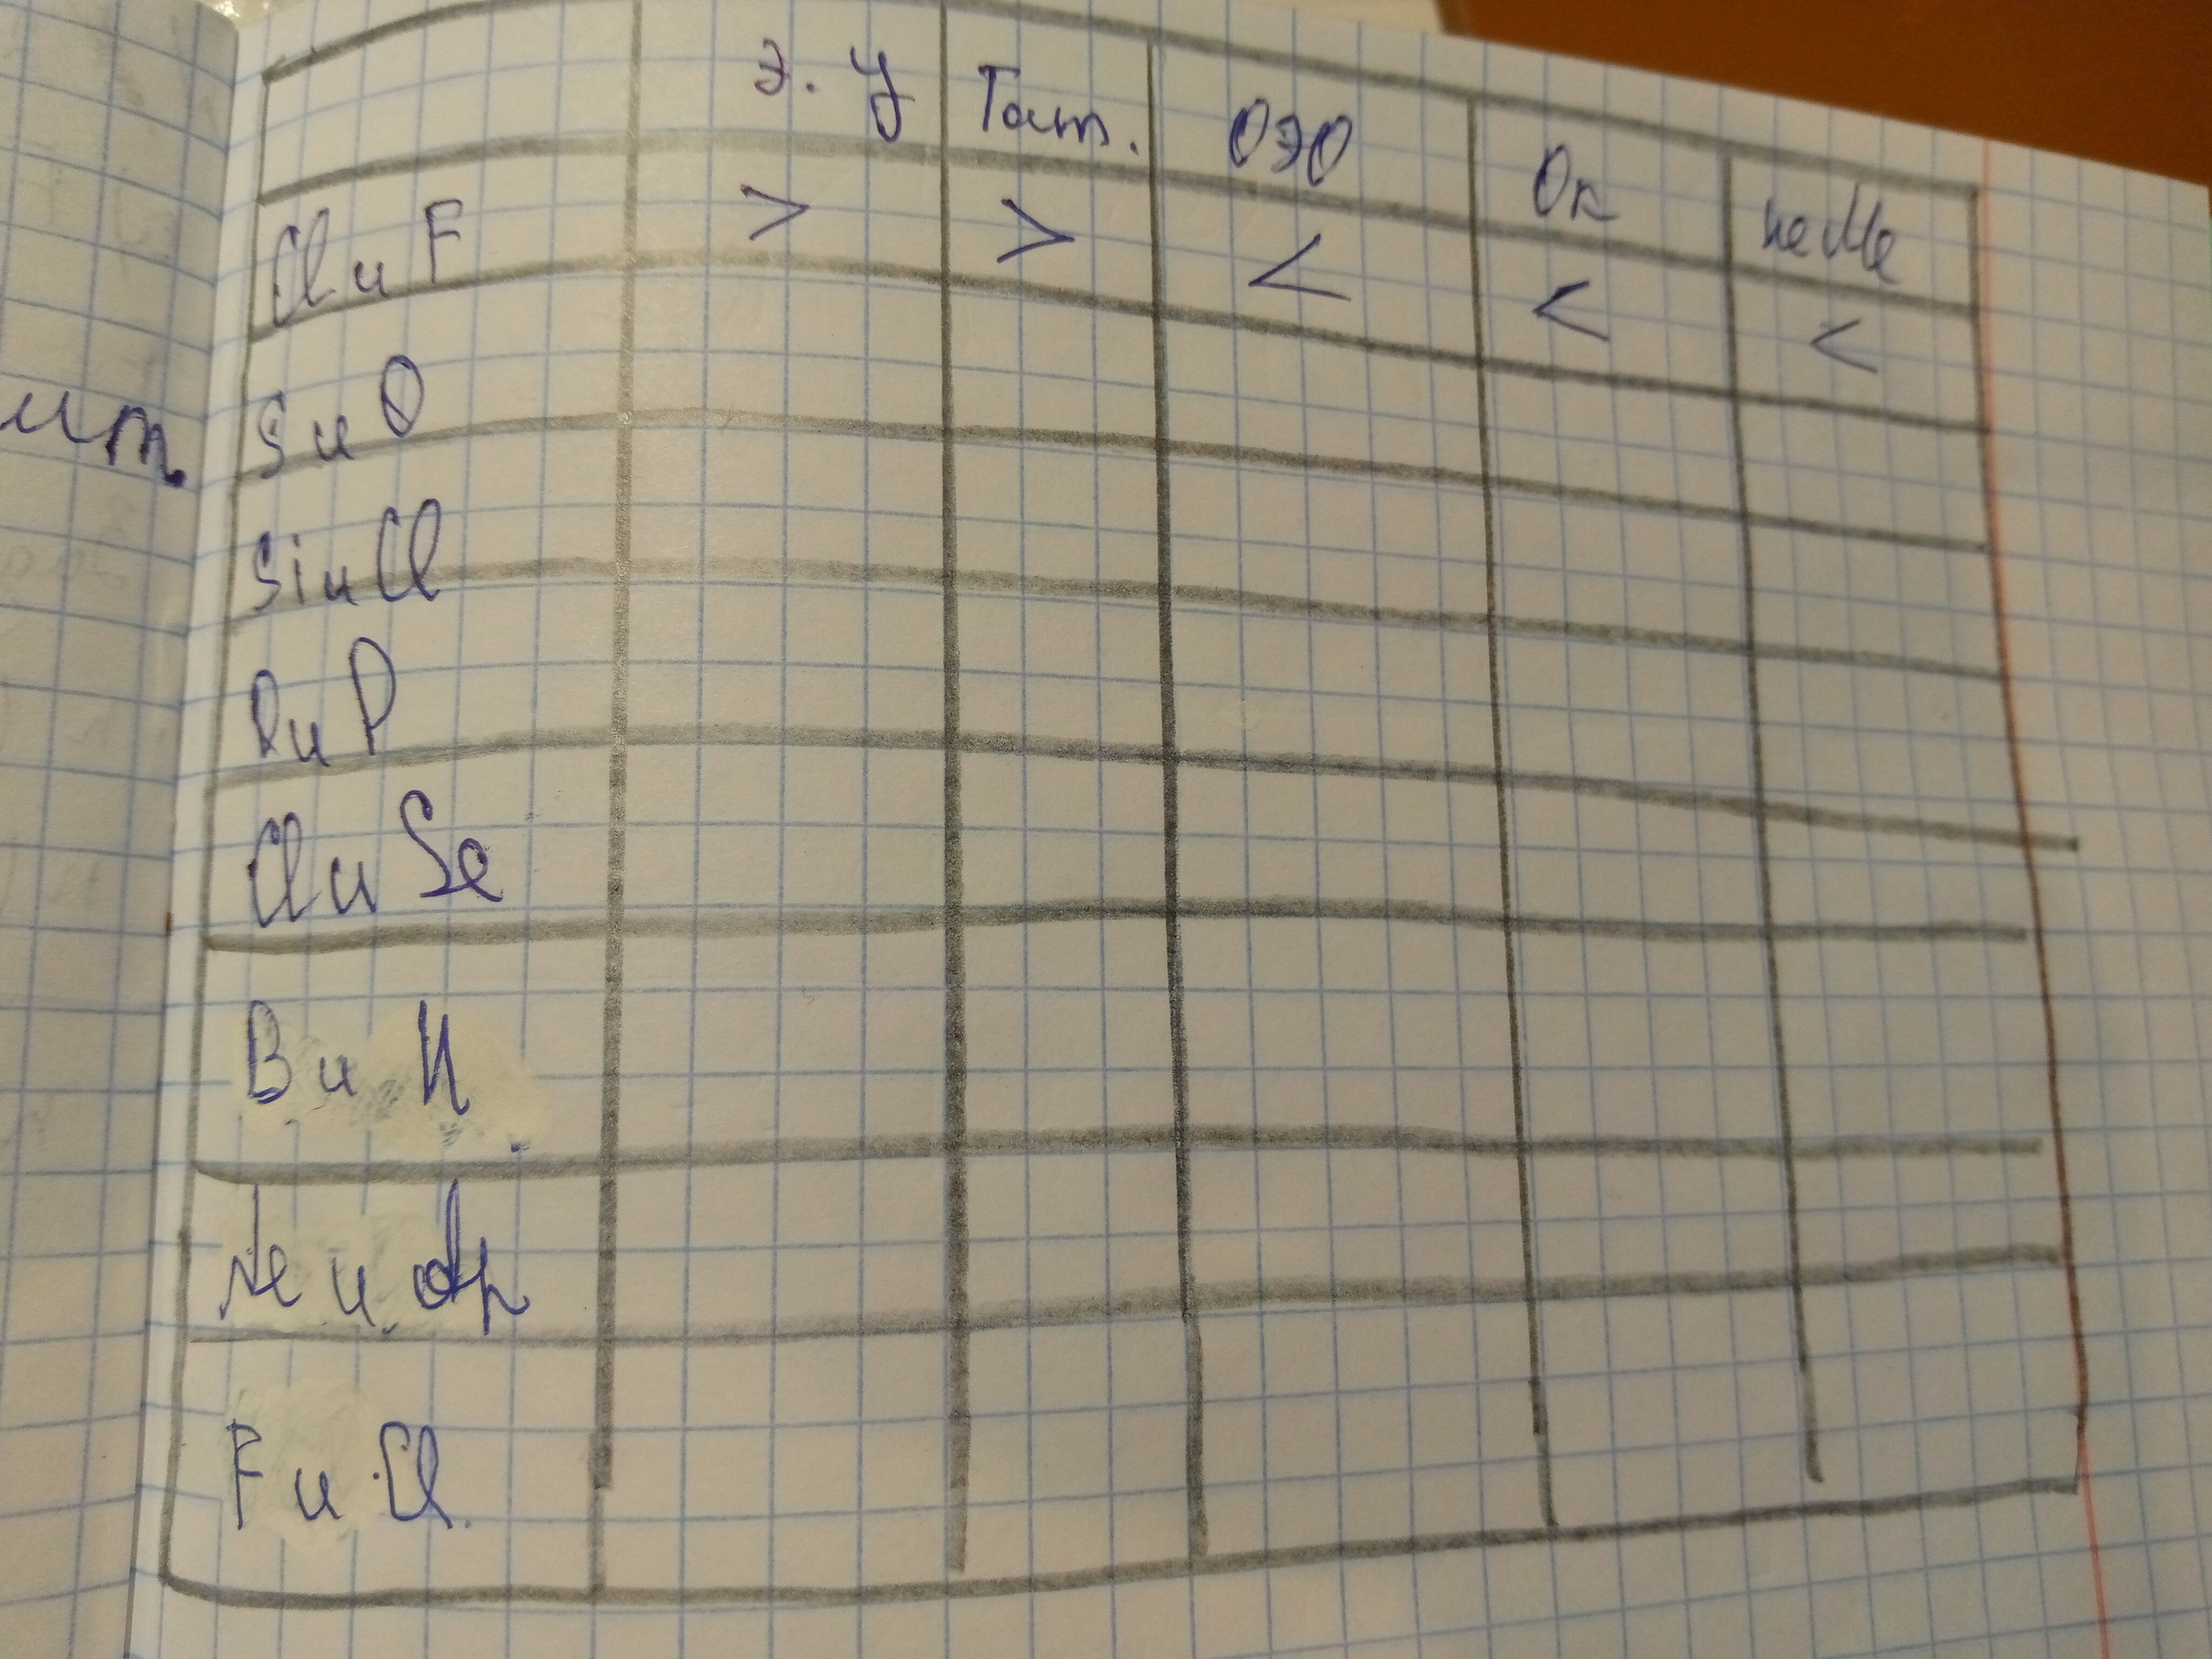 э. У Rат. ОЭО Ок неМе
Cl и F > > < < <
S и O
Si и Cl
P
Cl и Se
B и N
Ne и Ar
F и Cl
ит.